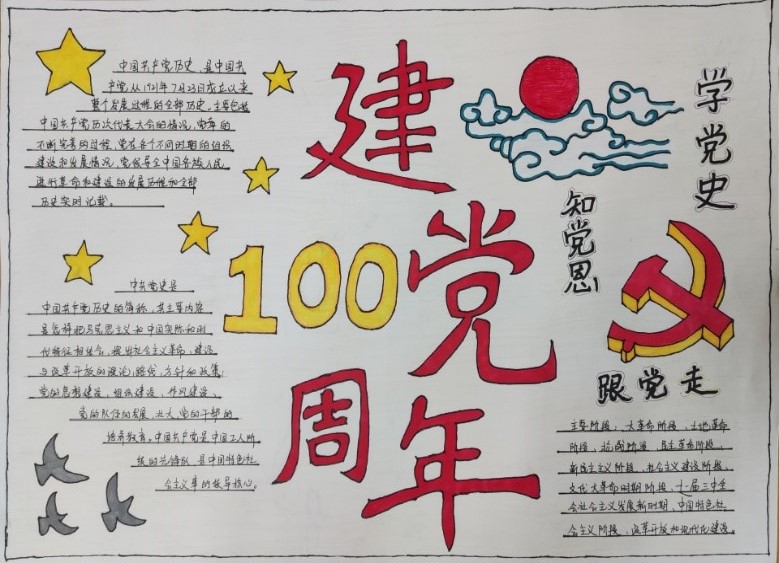 中国共产党历史,是中国共
产党从1921年7月23日成立以来
整个发展过程的全部历史。主要包括
中国共产党历次代表大会的情况,党章的
不断完善的过程,党在各个不同时期的组织
建设和发展情况,党领导全中国各族人民
进行革命和建设的发展历程和全部
历史实时记载。
中共党史是
中国共产党历史的简称,其主要内容
是怎样把马克思主义和中国实际和时
代特征相结合,提出社会主义革命、建设
与改革开放的理论,路线,方针和政策;
党的思想建设,组织建设,作风建设、
党的队伍的发展,壮大,党的干部的
培养教育。中国共产党是中国工人阶
级的先锋队,是中国特色社
会主义事的领导核心。
建党
100
周年
学党史
知党恩
跟党走
主要阶段:大革命阶段,土地革命
阶段,抗战阶段,民主革命阶段,
新民主主义阶段,社会主义建设阶段,
文化大革命时期阶段,十一届三中全
会社会主义发展新时期,中国特色社
会主义阶段,改革开放和现代化建设。